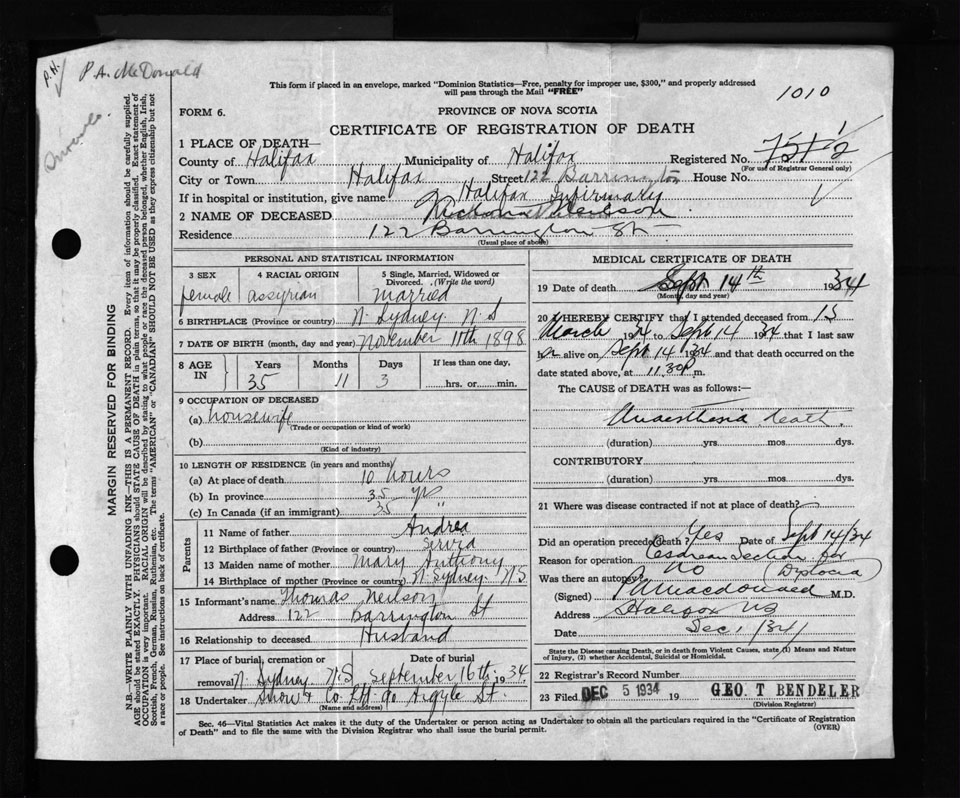 P.H.
P.A. McDonald
This form if placed in an envelope, marked "Dominion Statistics—Free, penalty for improper use, $300," and properly addressed
will pass through the Mail "FREE"
1010
FORM 6.
PROVINCE OF NOVA SCOTIA
CERTIFICATE OF REGISTRATION OF DEATH
1 PLACE OF DEATH—
County of Halifax Municipality of Halifax Registered No.
(For use of Registrar General only)
City or Town Halifax Street 122 Barrington House No.
If in hospital or institution, give name Halifax Infirmary
2 NAME OF DECEASED Neilson
Residence 122 Barrington St
(Usual place of above)
PERSONAL AND STATISTICAL INFORMATION
3 SEX 4 RACIAL ORIGIN 5 Single, Married, Widowed or
Divorced. (Write the word)
female assyrian Married
6 BIRTHPLACE (Province or country) N. Sydney N.S
7 DATE OF BIRTH (month, day and year) November 11th 1898
8 AGE IN Years Months Days If less than one day,
35 11 3 hrs. or min.
9 OCCUPATION OF DECEASED
(a) housewife
(Trade or occupation or kind of work)
(b)
(Kind of industry)
10 LENGTH OF RESIDENCE (in years and months)
(a) At place of death 10 hours
(b) In province 35 yr
(c) In Canada (if an immigrant) 35 "
Parents
11 Name of father Andrea
12 Birthplace of father (Province or country)
13 Maiden name of mother Mary Anthony
14 Birthplace of mother (Province or country) N. Sydney. N.S.
15 Informant's name Thomas Neilson
Address 122 Barrington St
16 Relationship to deceased Husband
17 Place of burial, cremation or Date of burial
removal N. Sydney N.S. September 16th, 1934
18 Undertaker Snow & Co. Ltd 90 Argyle St.
(Name and address)
MEDICAL CERTIFICATE OF DEATH
19 Date of death Sept. 14th 1934
(Month, day and year)
20 I HEREBY CERTIFY that I attended deceased from 15
March 1934 to Sept 14 1934 that I last saw
alive on Sept 14 1934 and that death occurred on
date stated above, at 11.30 P m.
The CAUSE OF DEATH was as follows:—
Anaesthesia death.
(duration) yrs mos dys.
CONTRIBUTORY
(duration) yrs mos dys.
21 Where was disease contracted if not at place of death?
Did an operation precede death? Yes Date of Sept 14/34
Reason for operation Section for
Was there an autopsy No
(Signed) P A Macdonald M.D.
Address Halifax NS
Date Dec 1/34
State the Disease causing Death, or in death from Violent Causes, state (1) Means and Nature
of Injury, (2) whether Accidental, Suicidal or Homicidal.
22 Registrar's Record Number
23 Filed DEC 5 1934 19 GEO. T BENDELER
(Division Registrar)
Sec. 46—Vital Statistics Act makes it the duty of the Undertaker or person acting as Undertaker to obtain all the particulars required in the "Certificate of Registration
of Death" and to file the same with the Division Registrar who shall issue the burial permit.
(OVER)
MARGIN RESERVED FOR BINDING
N.B.—WRITE PLAINLY WITH UNFADING INK—THIS IS A PERMANENT RECORD. Every item of information should be carefully supplied.
AGE should be stated EXACTLY. PHYSICIANS should STATE CAUSE OF DEATH in plain terms, so that it may be properly classified. Exact statement of
OCCUPATION is very important. RACIAL ORIGIN will be described by stating to what people or race the deceased person belonged, whether English, Irish,
Scottish, French, German, Russian, Ruthenian, etc. The terms "AMERICAN" or "CANADIAN" SHOULD NOT BE USED as they express citizenship but not
a race or people. See instructions on back of certificate.